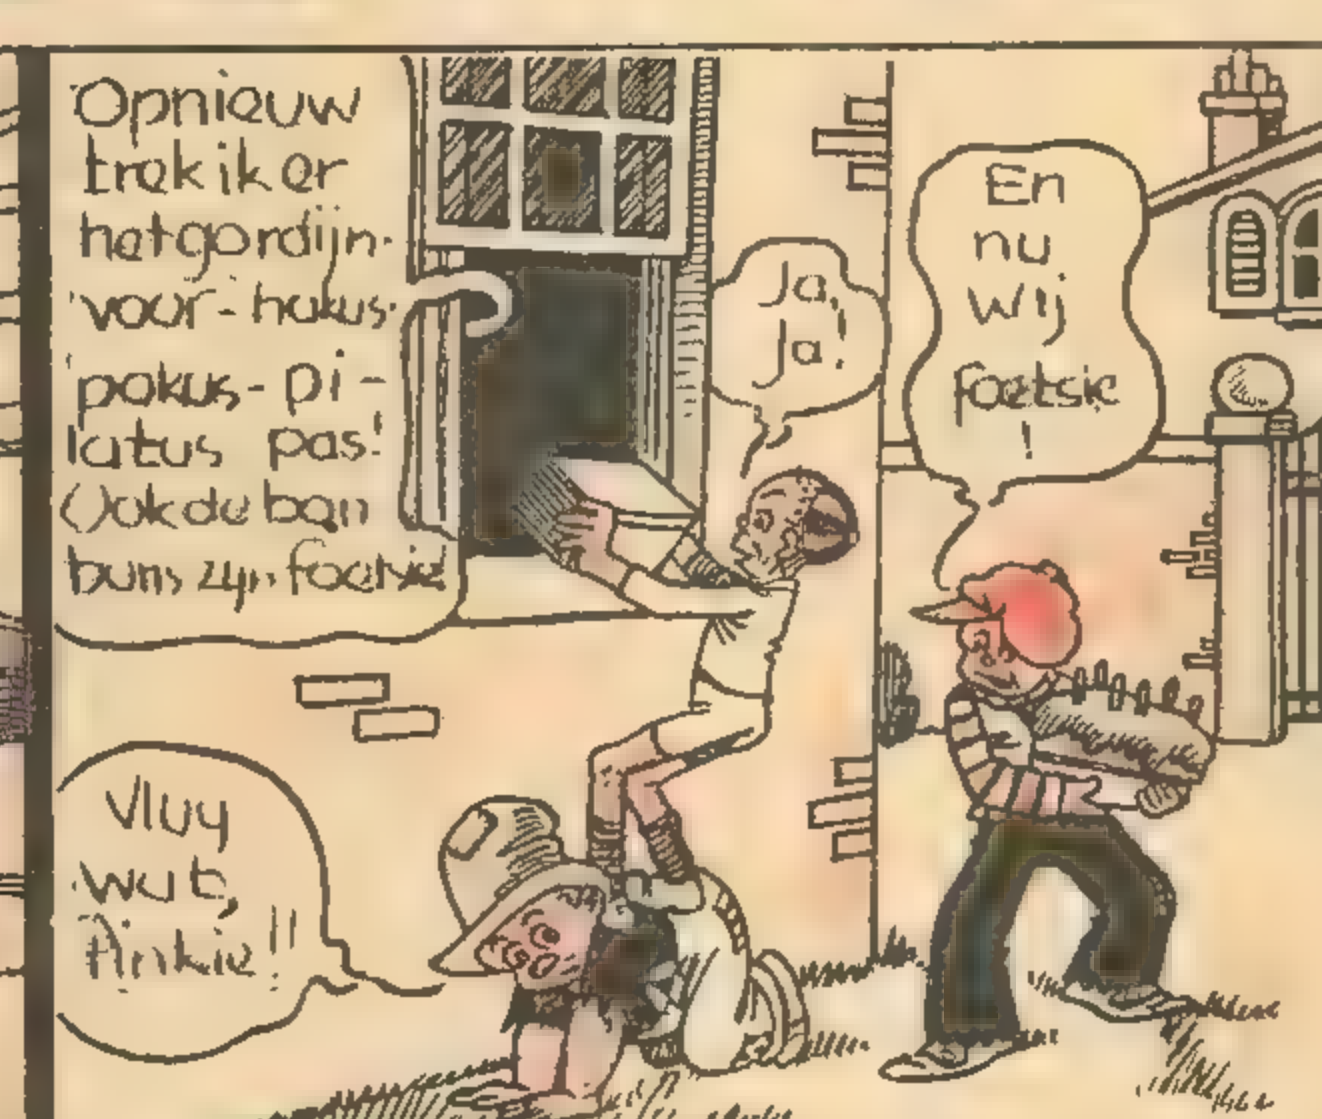 Opnieuw
trek ik er
het gordijn
voor - hokus
pokus - pi -
latus pas!
Ook de bon
bons zijn foetsie
Ja,
Ja!
En
nu
wij
foetsie
!
Vlug
wat,
Pinkie!!